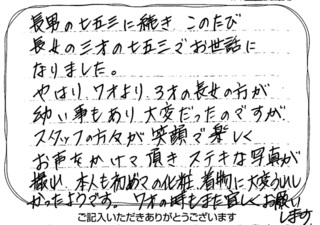 長男の七五三に続き このたび
長女の三才の七五三でお世話に
なりました。
やはり、7才より、3才の長女の方が
幼い事もあり大変だったのですが
スタッフの方々が笑顔で楽しく
お声をかけて頂き ステキな写真が
撮れ、本人も初めての化粧、着物に大変うれし
かったようです。7才の時もまた宜しくお願い
します
ご記入いただきありがとうございます